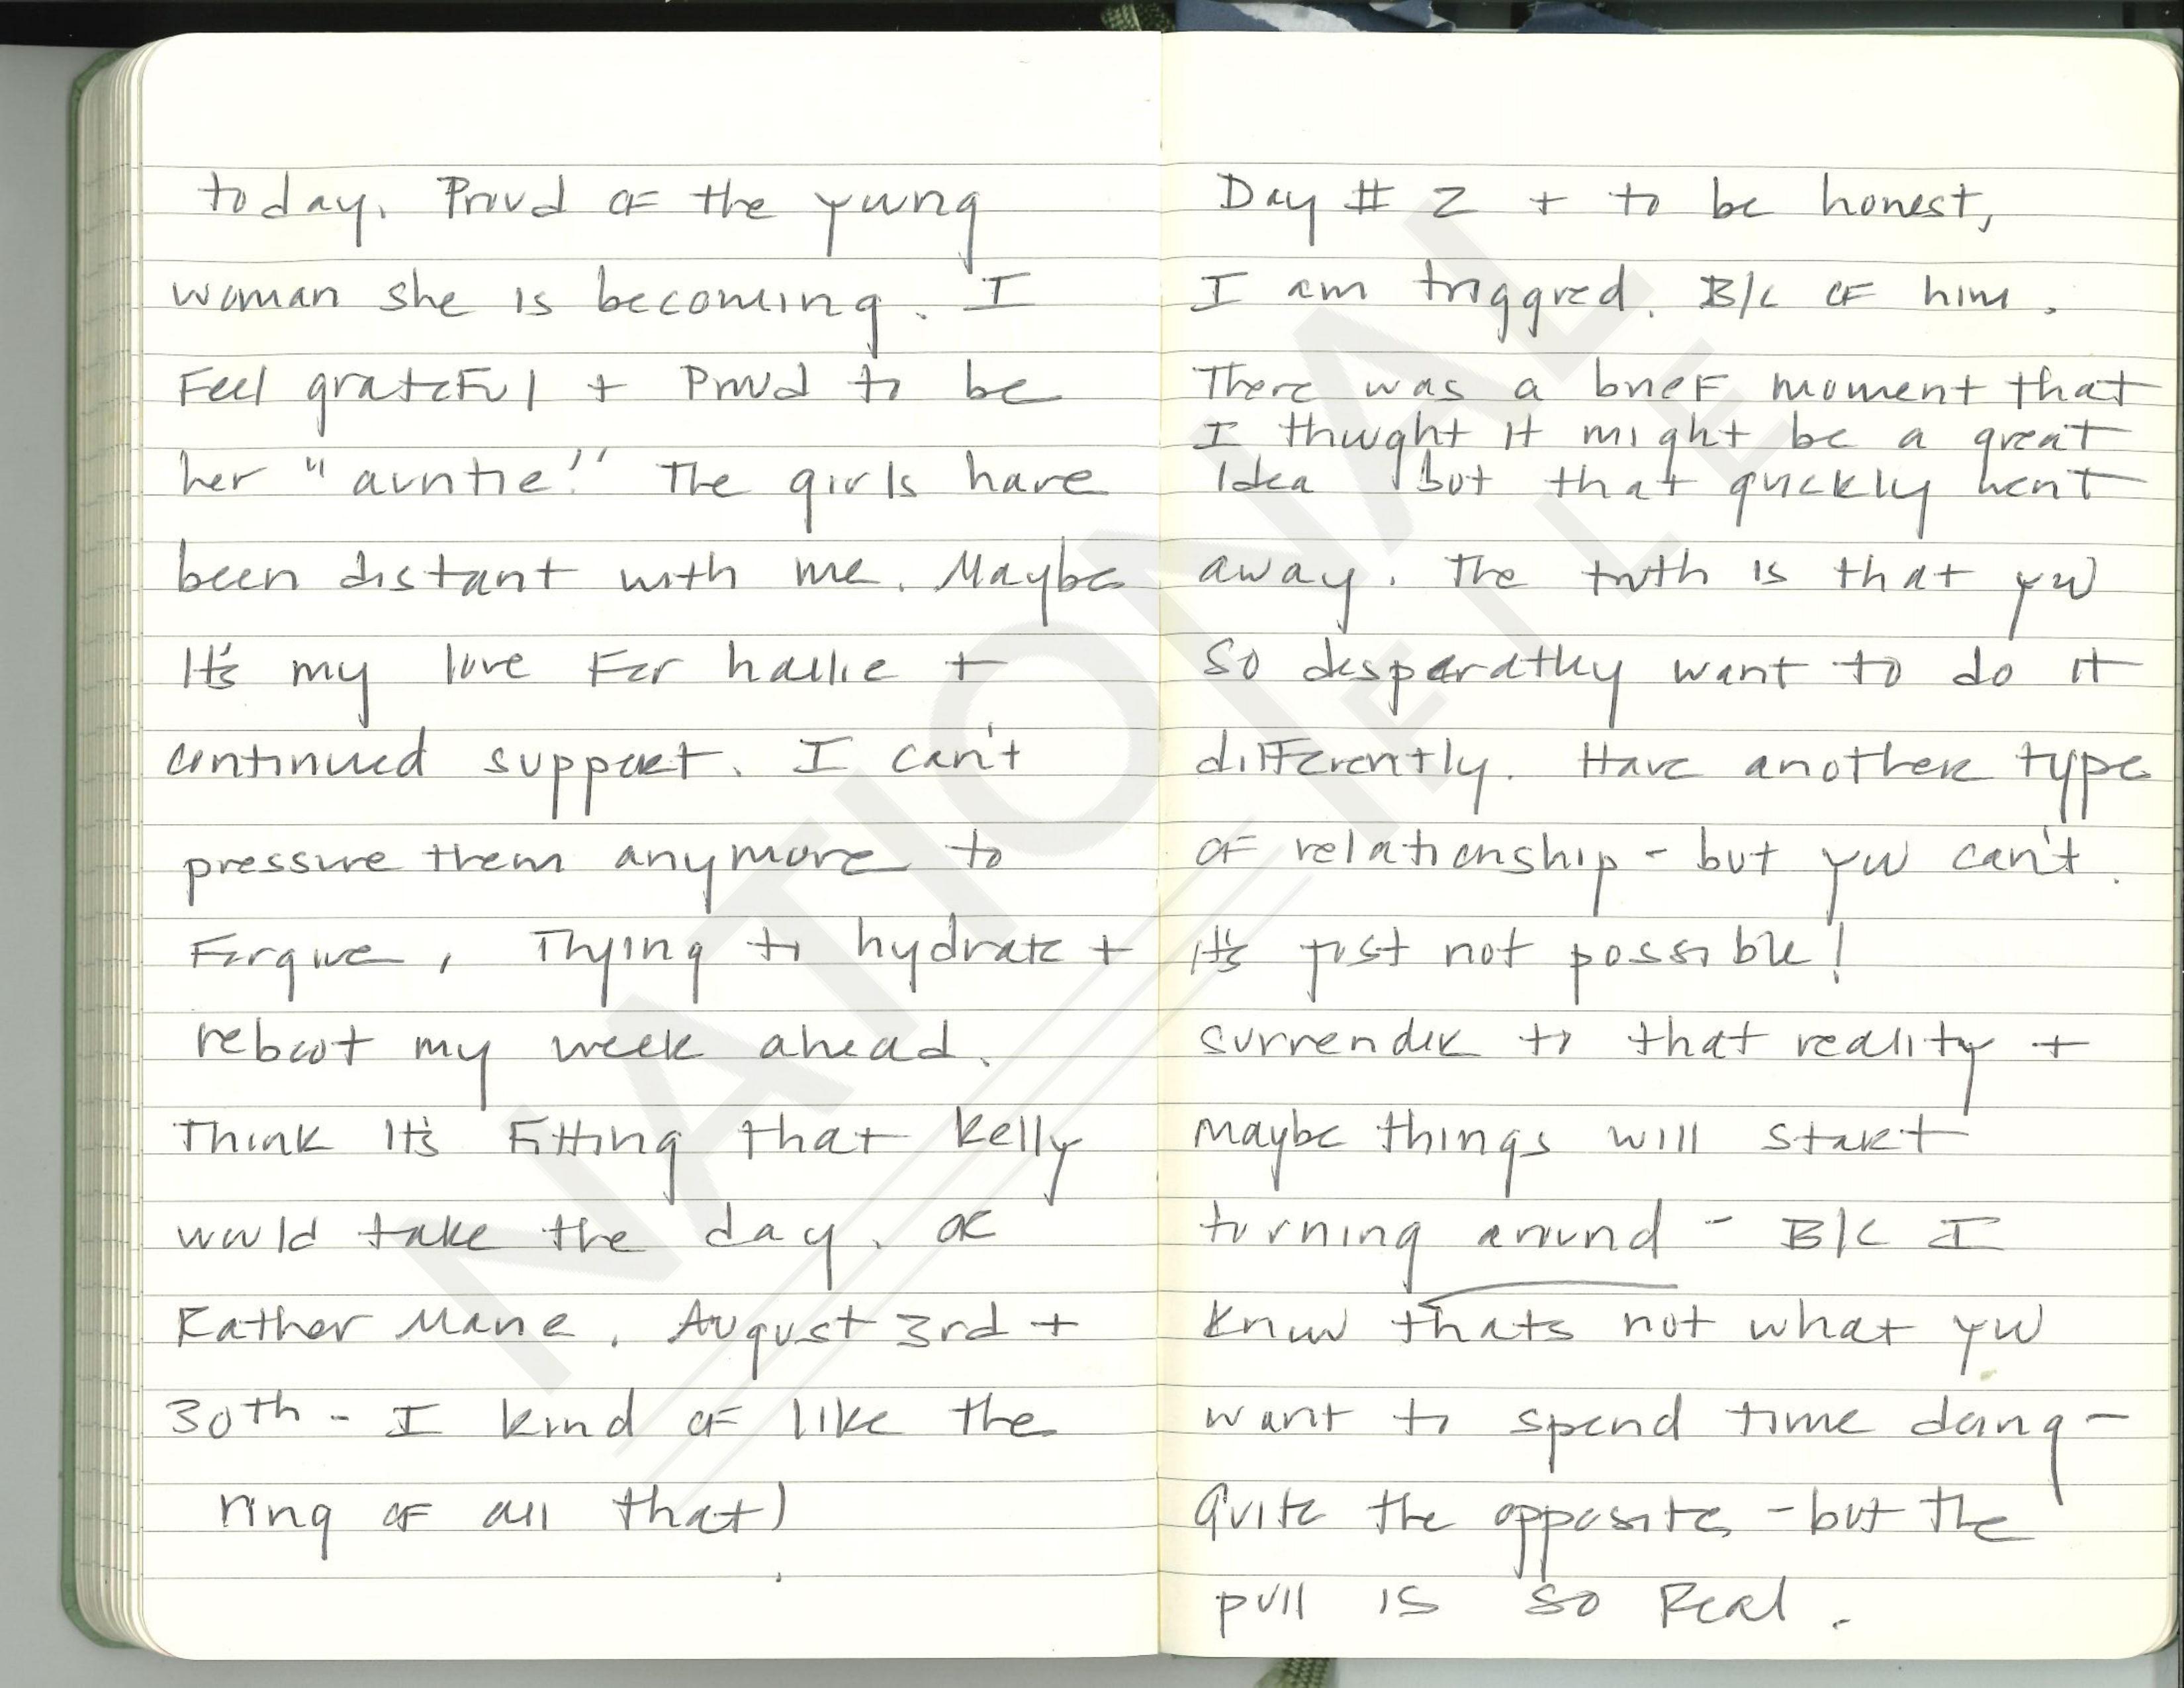 today. Proud of the young
woman she is becoming. I
Feel grateful + Proud to be
her "auntie!" The girls have
been distant with me. Maybe
It's my love For hallie +
continued support. I can't
pressure them anymore to
Forgive, Trying to hydrate +
reboot my week ahead.
Think It's Fitting that Kelly
would take the day. or
Rather Marie. August 3rd +
30th - I kind of like the
ring of all that)
Day # 2 + to be honest,
I am triggred. B/C of him.
There was a brief moment that
I thought it might be a great
Idea but that quickly went
away. The truth is that you
So desparatley want to do it
differently. Have another type
of relationship - but you can't.
It's just not possible!
surrender to that reality +
maybe things will start
turning around - B/C I
Know thats not what you
want to spend time doing -
Quite the opposite - but the
pull is so Real.
NATIONAL
FILE